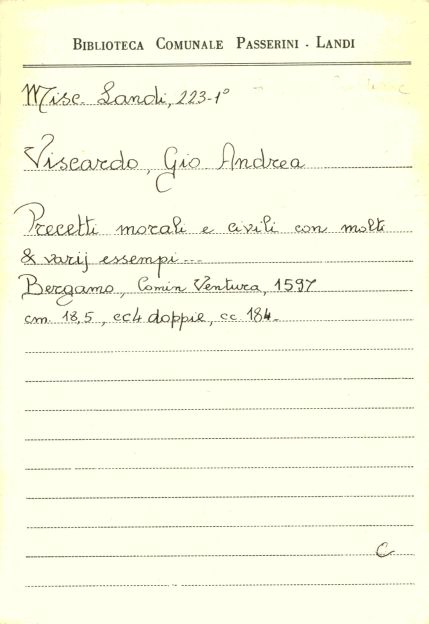 BIBLIOTECA COMUNALE PASSERINI - LANDI
Misc. Landi, 223-1°
Viscardo, Gio Andrea
Precetti morali e civili con molti
& varij essempi...
Bergamo, Comin Ventura, 1597
cm. 18,5, cc4 doppie, cc 184.
C